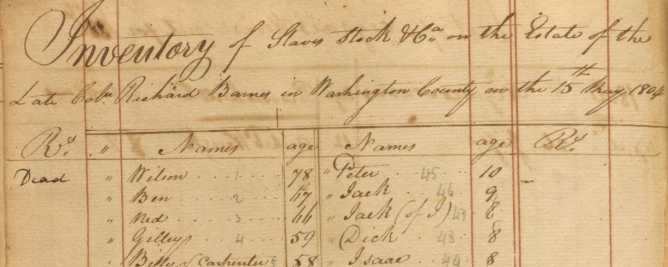 Inventory of Slaves Stock &Ca on the Estate of the
Late Coln Richard Barnes in Washington County on the 15th May 1804
Rs. " Names age Names age Rs.
Dead " Wilson 1 78 " Peter 45 10
" Ben 2 67 " Jack 46 9
" Ned 3 66 " Jack (of J) 47 8
" Gilley 4 59 " Dick 48 8
" Billy Carpenter 5 58 " Isaac 8